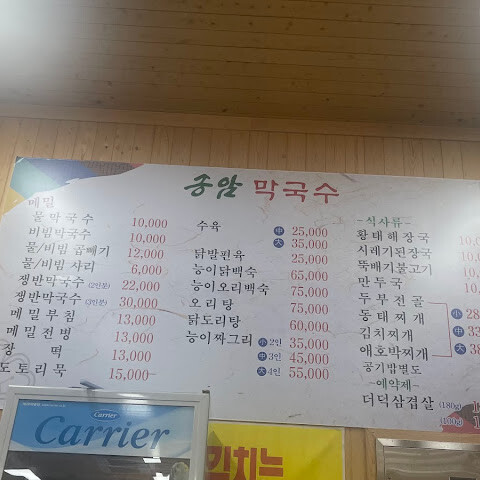 송암 막국수
메밀
물막국수 10,000
비빔막국수 10,000
물/비빔 곱빼기 12,000
물/비빔 사리 6,000
쟁반막국수 (2인분) 22,000
쟁반막국수 (3인분) 30,000
메밀부침 13,000
메밀전병 13,000
장떡 13,000
도토리묵 15,000
수육 中 25,000
大 35,000
닭발편육 25,000
능이닭백숙 65,000
능이오리백숙 75,000
오리탕 75,000
닭도리탕 60,000
능이짜그리 小 2인 35,000
中 3인 45,000
大 4인 55,000
-식사류-
황태해장국
시레기된장국
뚝배기불고기
만두국
두부전골
동태찌개 小
김치찌개 中
애호박찌개 大
공기밥별도
-예약제-
더덕삼겹살 (180g)
(100g)
Carrier
Carrier
김치는